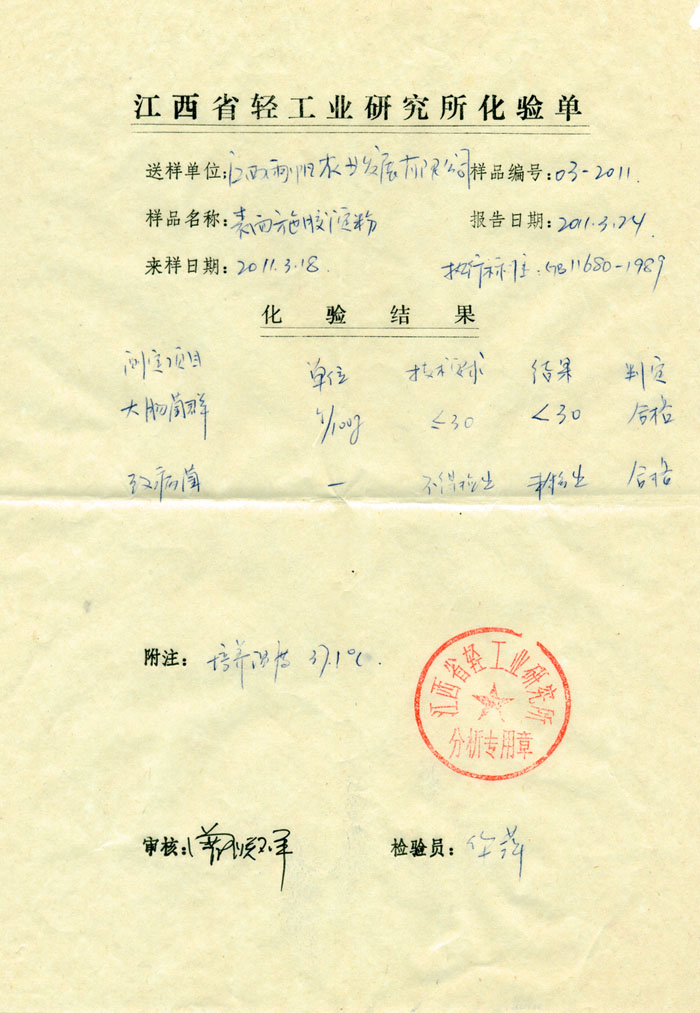 江西省轻工业研究所化验单
送样单位:江西 农业发展有限公司 样品编号:03-2011.
样品名称:表面施胶淀粉 报告日期:2011.3.24.
来样日期:2011.3.18. 执行标准:GB11680-1989
化验结果
测定项目 单位 技术要求 结果 判定
大肠菌群 个/100g ≤30 <30 合格
致病菌 — 不得检出 未检出 合格
附注: 培养温度 37.1℃.
江西省轻工业研究所
分析专用章
审核: 检验员: